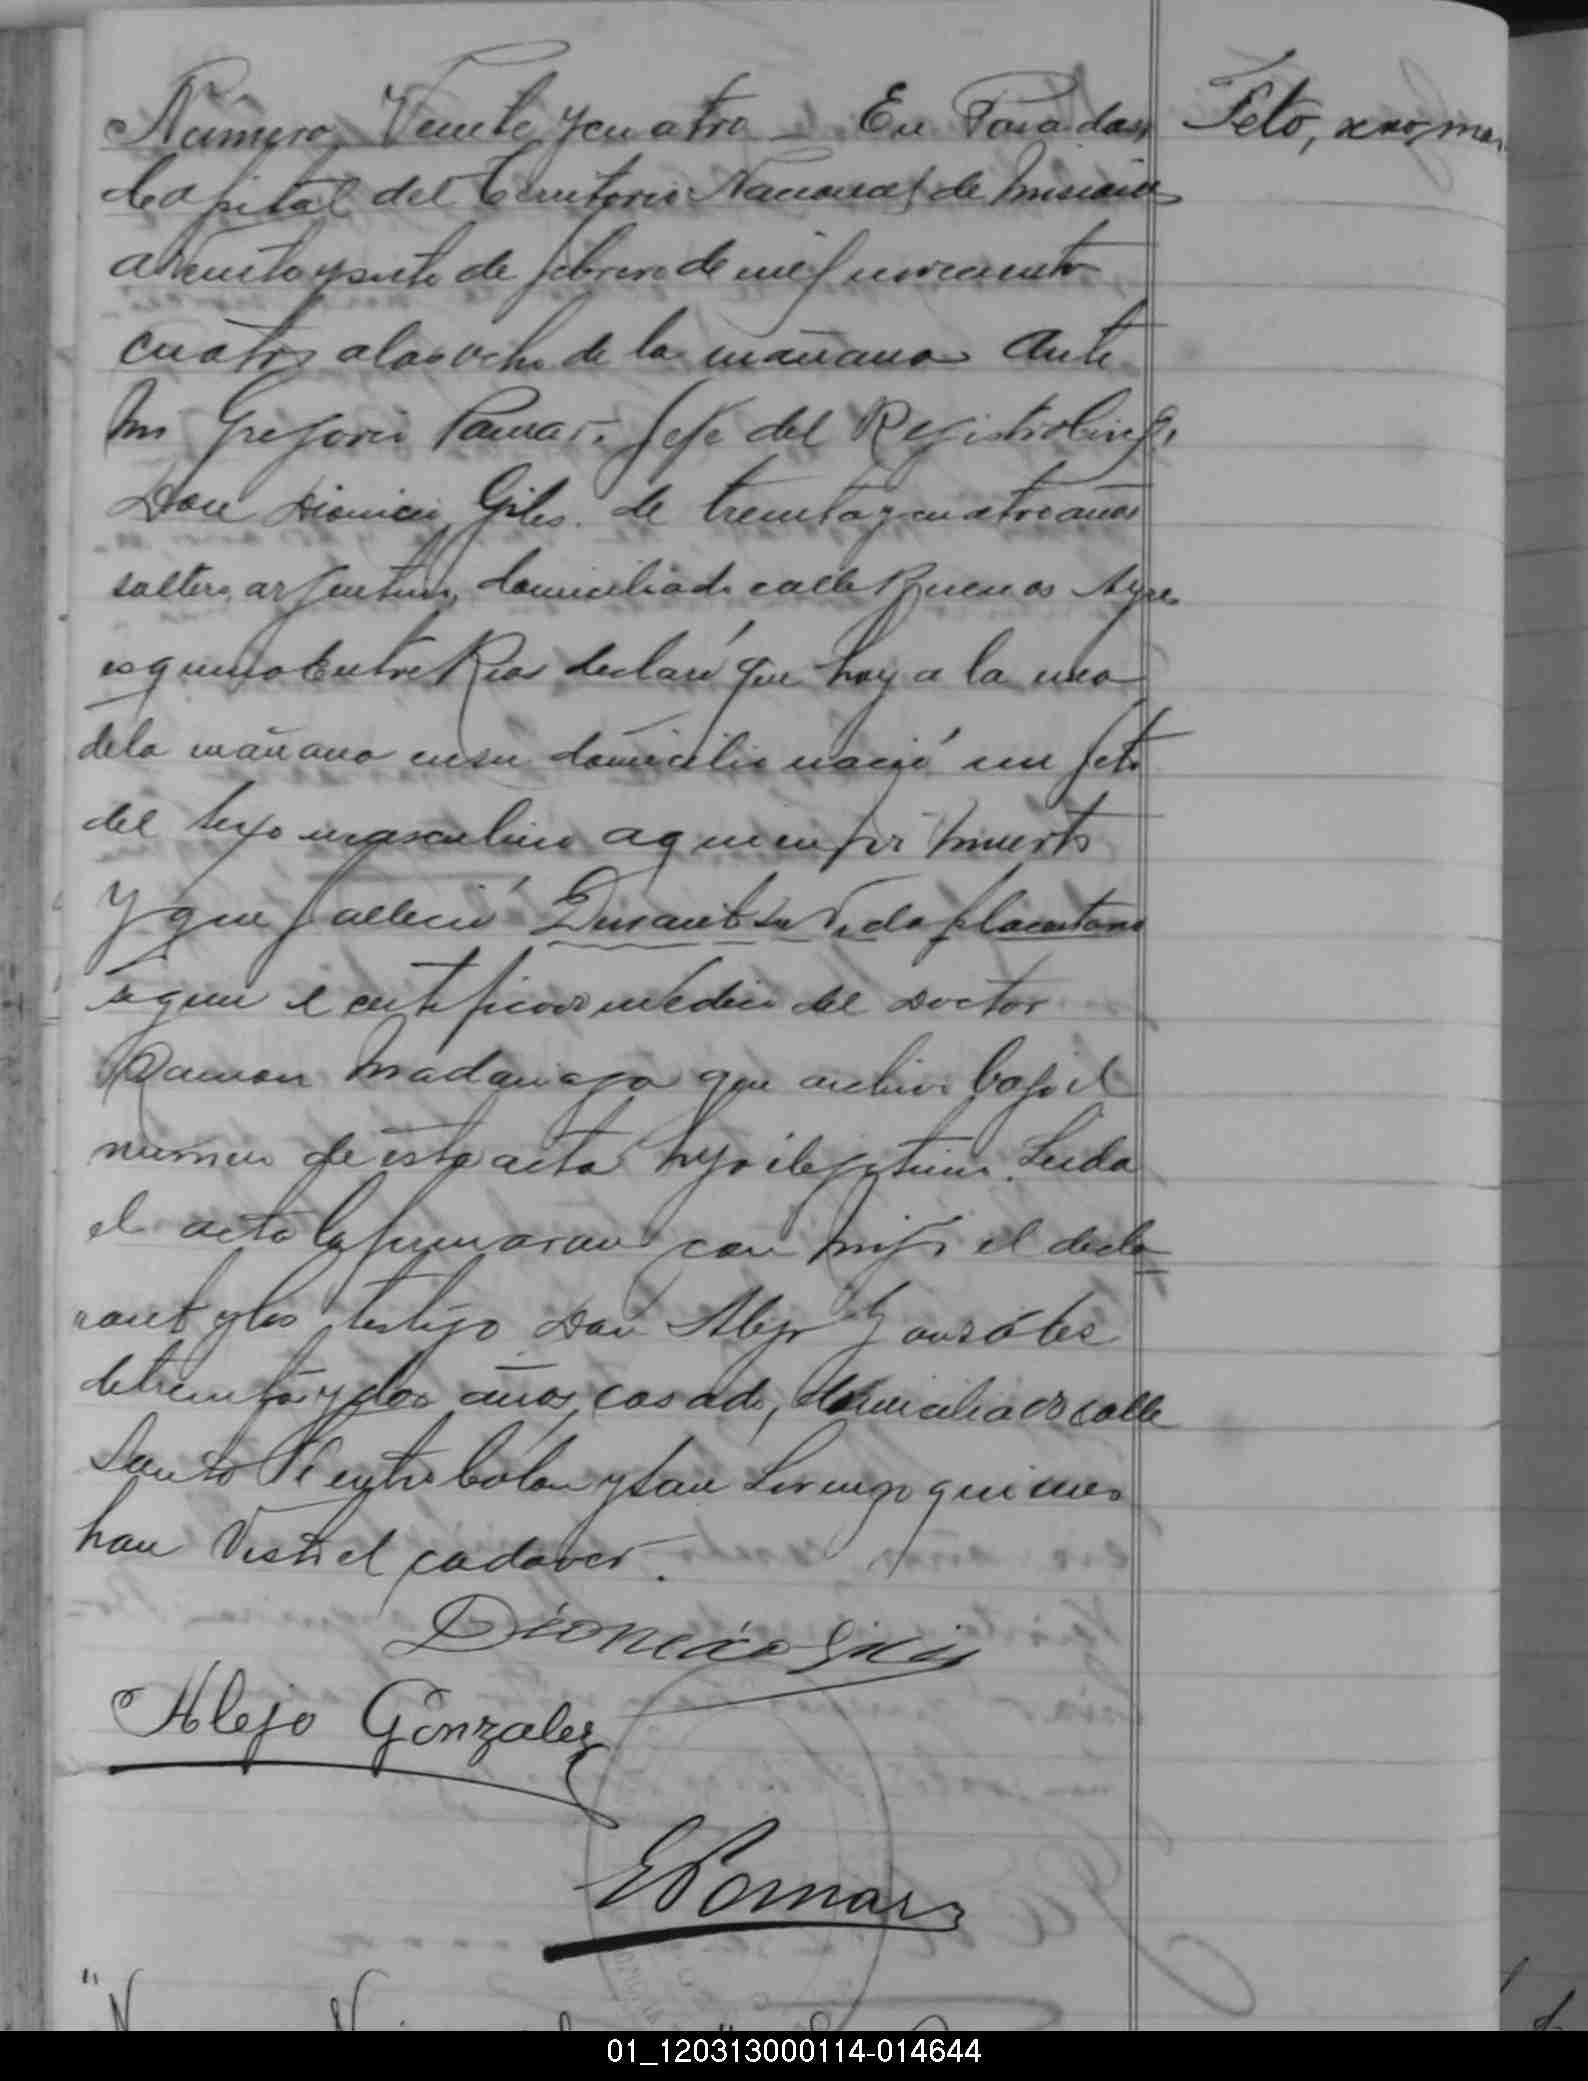 Número Veinte y cuatro - En Posadas
Capital del Territorio Nacional de Misiones
a veinte y siete de febrero de mil novecientos
cuatro a las ocho de la mañana Ante
mi Gregorio Pomar Jefe del Registro Civil,
Don Dionicio Giles de treinta y cuatro años
soltero, argentino, domiciliado calle Buenos Ayres
esquina Entre Rios declaró que hoy a la una
de la mañana en su domicilio nació un feto
del sexo masculino muerto
Y que falleció Durante su Vida placentaria
segun el certificado médico del Doctor
Ramon Madariaga que archivo bajo el
numero de esta acta hijo ilegitimo. Leida
el acta la firmaron con migo el decla
rante y los testigo Don Alejo Gonzáles
de treinta y dos años, casado, domiciliado calle
Santa Fé entre Colon y San Lorenzo quienes
han Visto el cadaver.
Dionicio Giles
Alejo Gonzalez
Pomar
Feto,
01_120313000114-014644